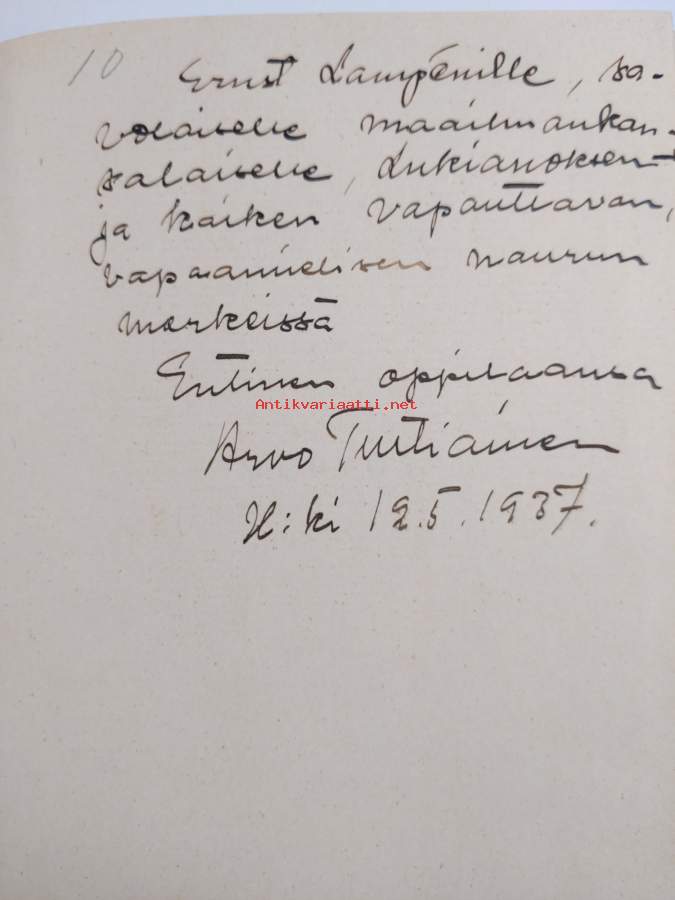 10
Ernst Lampénille, sa-
volaiselle maailmankan-
salaiselle, Lukianoksen
ja kaiken vapauttavan,
vapaamielisen naurun
merkeissä
Entinen oppilaansa
Antikvariaatti.net
Arvo Turtiainen
H:ki 12.5.1937.